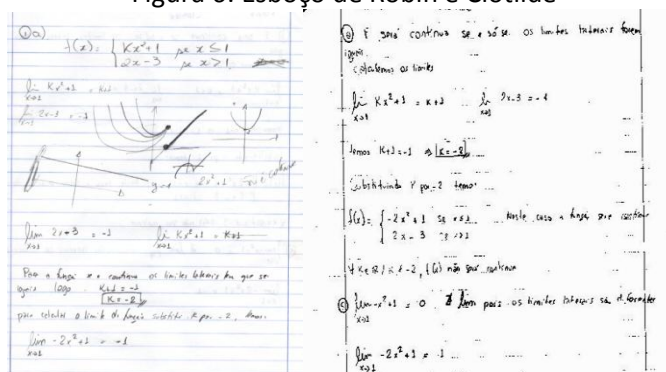 Figura 6: Esboço de Robin e Clotilde
① a)
f(x) = { Kx²+1 se x ≤ 1
2x-3 se x > 1
lim x→1 Kx²+1 = K+1
lim x→1 2x-3 = -1
lim x→1 2x-3 = -1 lim x→1 Kx²+1 = K+1
Para a função ser continua os limites laterais tem que ser
iguais logo K+1 = -1
K = -2
para calcular o limite da função substitui K por -2, temos
lim x→1 -2x²+1 = -1
ⓑ F será continua se e só se os limites laterais forem
iguais
calculemos os limites
lim x→1 Kx²+1 = K+1 lim x→1 2x-3 = -1
temos K+1 = -1 K = -2
Substituindo K por -2 temos
f(x) = { -2x²+1 se x ≤ 1 Neste caso a função
2x-3 se x>1
K ≠ -2, f(x) não será continua
ⓒ lim x→1 -x²+1 = 0 pois os limites laterais são diferentes
lim x→1 -2x²+1 = 1